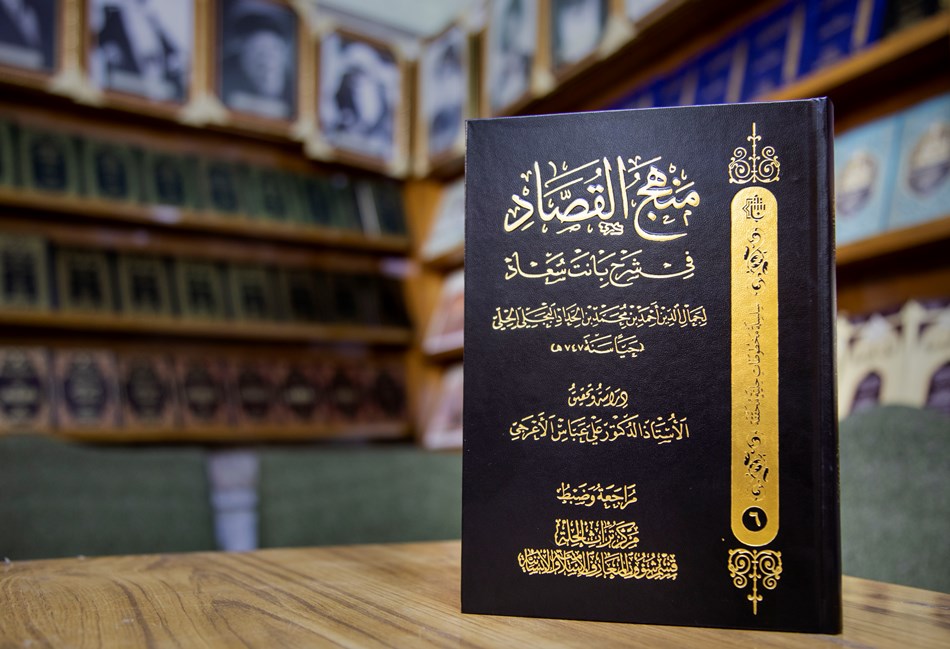 مَنهَجُ القُصَّادِ
في شَرحِ بَانَت سُعَاد
لجمال الدين أحمد بن محمد بن الحداد البجلي الحلي
(حيًّا سنة ٧٤٧هـ)
دراسة وتحقيق
الأستاذ الدكتور علي عباس الأعرجي
مراجعة وضبط
مركز تراث الحلة
قسم شؤون المعارف الإسلامية والإنسانية
سلسلة مخطوطات حلية محققة
٦